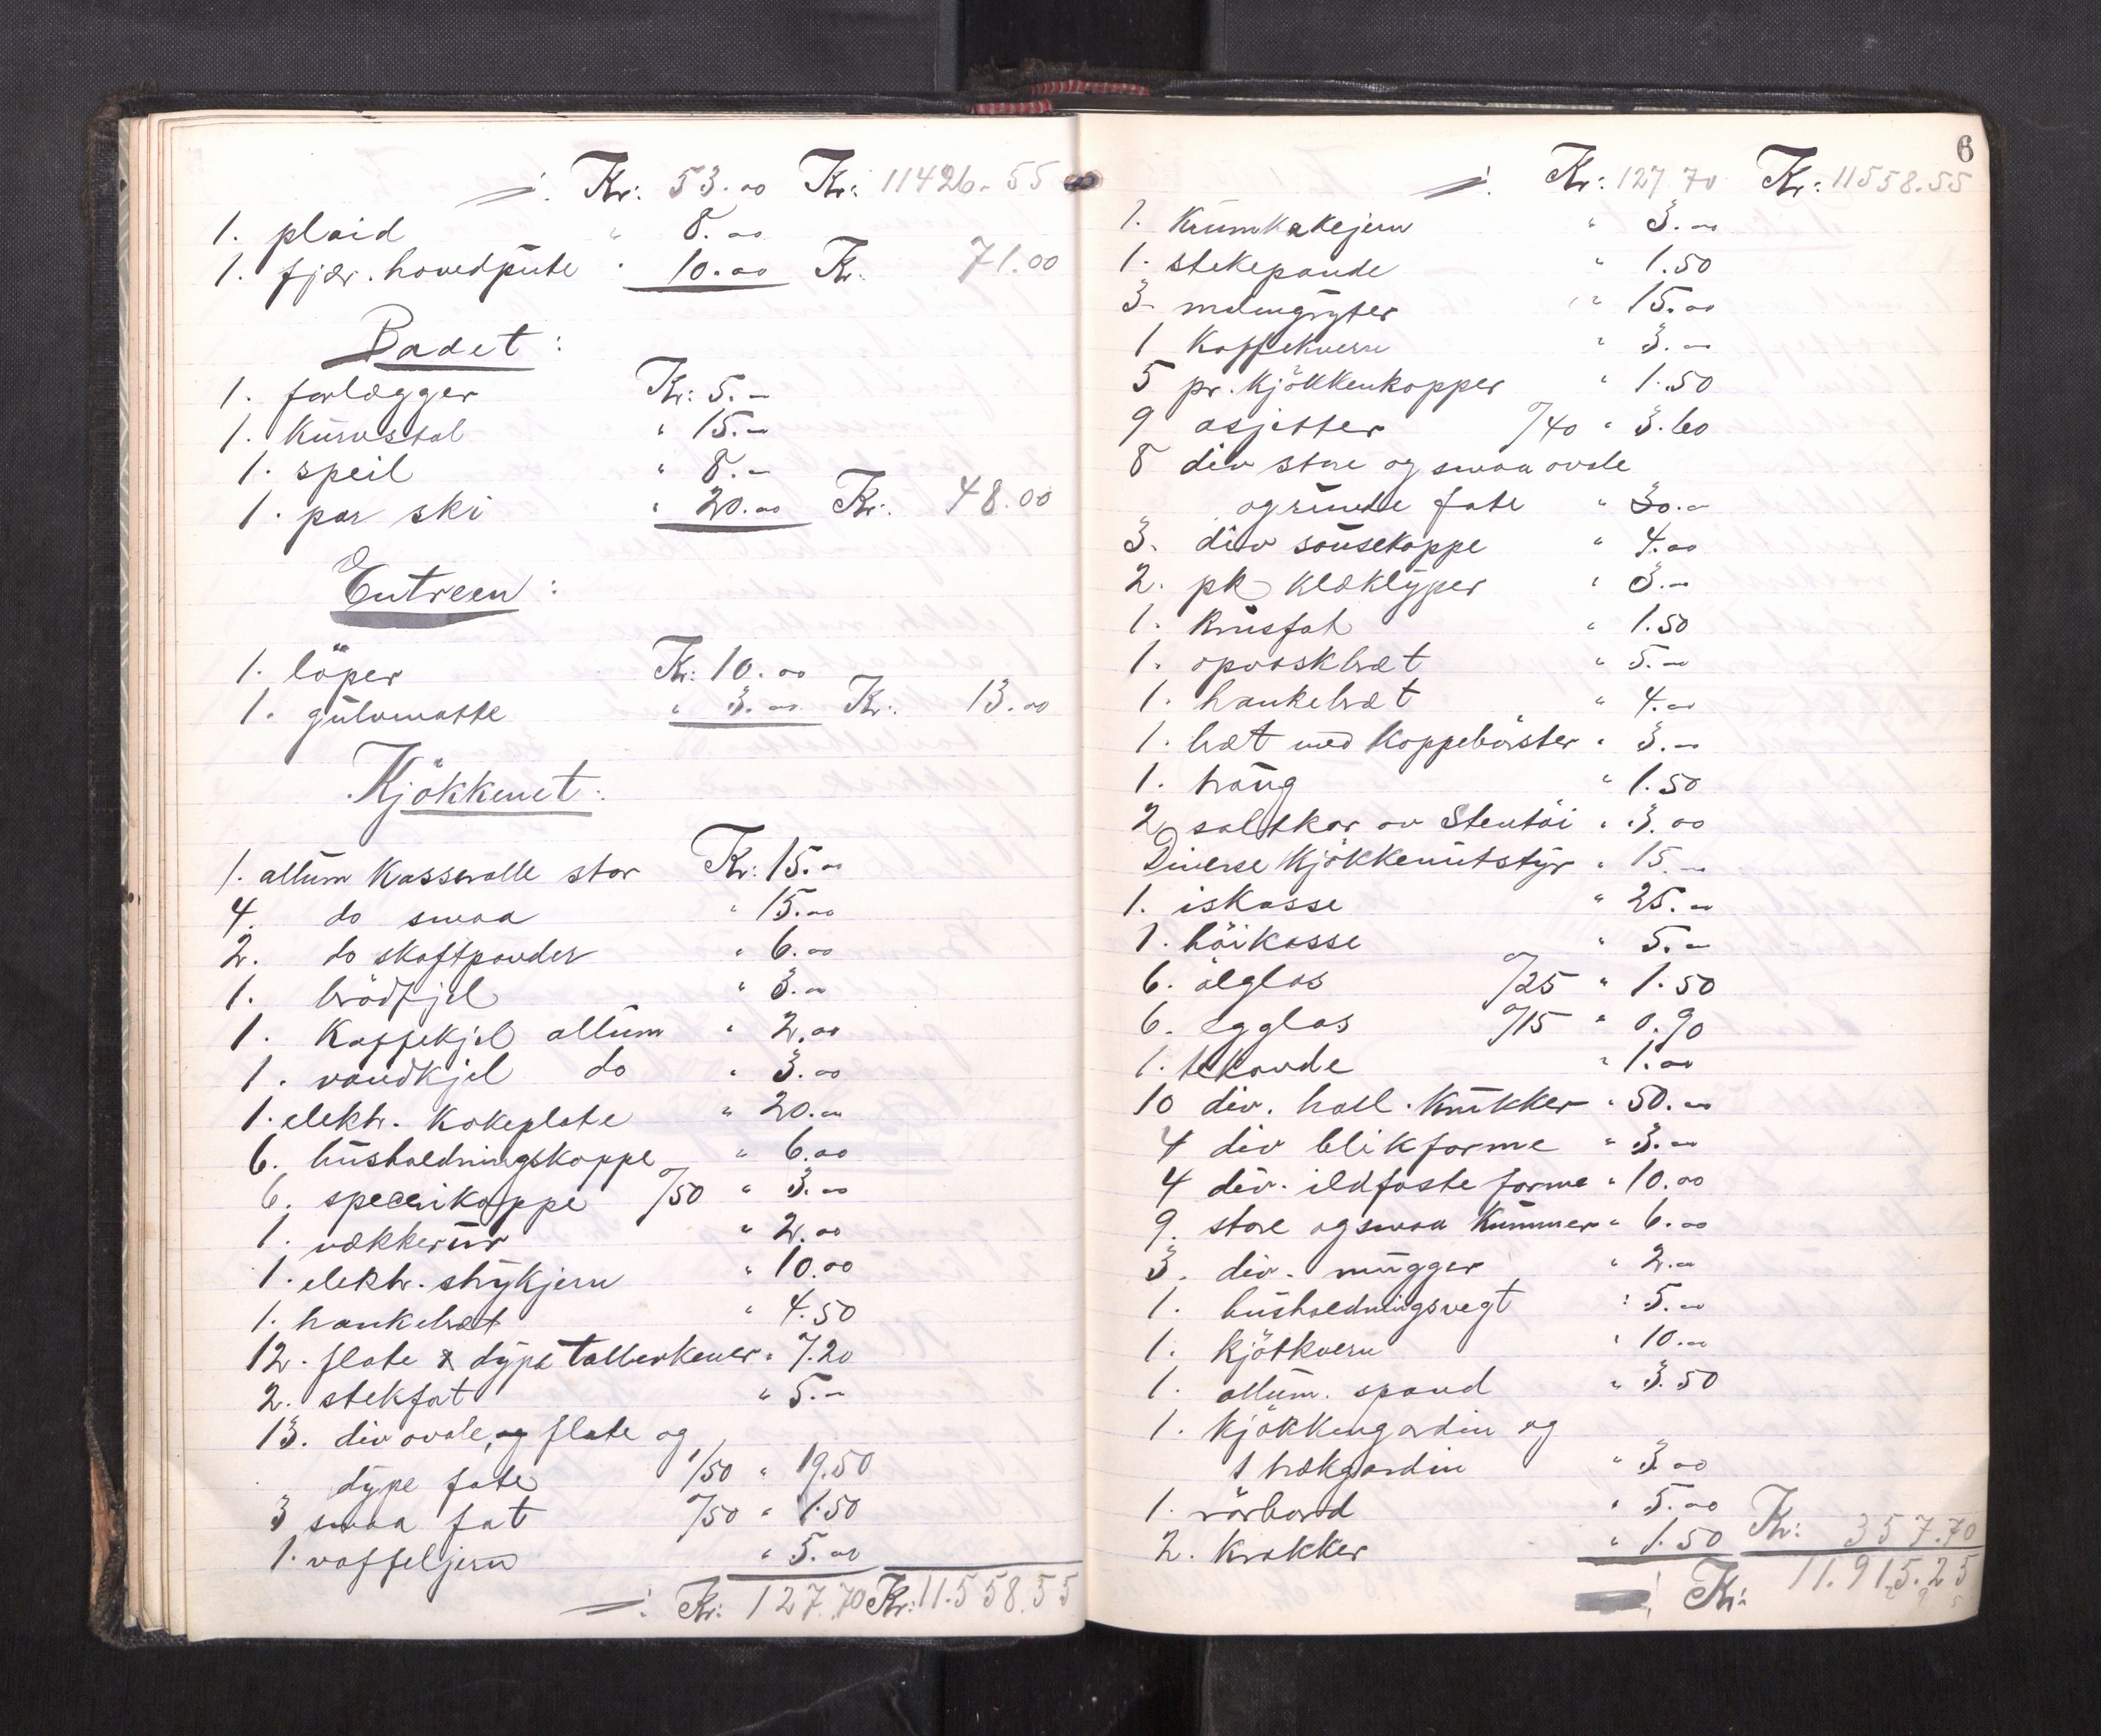 ÷ Kr: 53.00 Kr: 11426.55
1. plaid " 8.00
1. fjær. hovedpute " 10.00 Kr. 71.00
Badet:
1. forlægger Kr: 5.-
1. Kurvstol " 15.-
1. speil " 8.-
1. par ski " 20.00 Kr. 48.00
Entreen:
1. löper Kr: 10.00
1. gulvmatte " 3.00 Kr. 13.00
Kjökkenet:
1. allum Kasserolle stor Kr: 15.00
4. do smaa " 15.00
2. do skaftpander " 6.00
1. brödkjel " 3.00
1. Kaffekjel allum " 2.00
1. vandkjel do " 3.00
1. elektr. Kokeplate " 20.00
6. husholdningskoppe " 6.00
6. specerikoppe 0/50 " 3.00
1. vækkerur " 2.00
1. elektr. strykjern " 10.00
1. hankebræt " 4.50
12. flate & dype tallerkener " 7.20
2. stekfat " 5.-
13. div ovale, og flate og
dype fate 1/50 " 19.50
3 smaa fat 0/50 " 1.50
1. vaffeljern " 5.00
÷ Kr: 127.70 Kr: 11.558.55
6
÷ Kr: 127 70 Kr: 11558.55
1. Krumkakejern " 3.00
1. stekepande " 1.50
3 malmgryter " 15.00
1 Kaffekvern " 3.-
5 pr. Kjökkenkopper " 1.50
9 asjetter 0/40 " 3.60
8 div store og smaa ovale
og runde fate " 30.-
3. div sausekoppe " 4.00
2. pk klæklyper " 3.-
1. Krusfat " 1.50
1. opvaskbræt " 5.-
1. hankebræt " 4.-
1. bræt med Koppebörster " 3.-
1. traug " 1.50
2 saltkar av Stentöi " 3.00
Diverse Kjökkenutstyr " 15.-
1. iskasse " 25.-
1. höikasse " 5.-
6. ölglas 0/25 " 1.50
6. egglas 0/15 " 0.90
1. tekande " 1.00
10 div. holl. Krukker " 50.-
4 div blikforme " 3.-
4 div. ildfaste forme " 10.00
9. store og smaa Kummer " 6.00
3. div. mugger " 2.-
1. husholdningsvegt " 5.-
1. Kjötkvern " 10.-
1. allum. spand " 3.50
1. Kjökkengardin og
1 trækgardin " 3.00
1. rörbord " 5.00
2. Krakker " 1.50 Kr: 357.70
Kr: 11.915.25